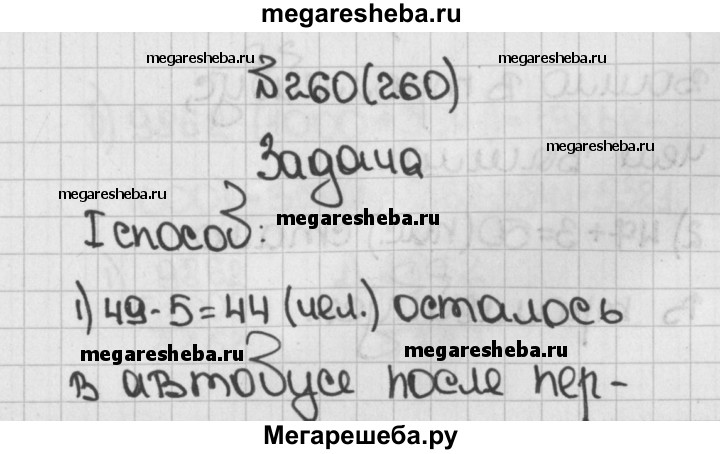 megaresheba.ru
megaresheba.ru
megaresheba.ru
№260(260)
megaresheba.ru
Задача
megaresheba.ru
megaresheba.ru
I способ:
1) 49-5=44 (чел.) осталось
megaresheba.ru
megaresheba.ru
в автобусе после пер-
Мегарешеба.ру